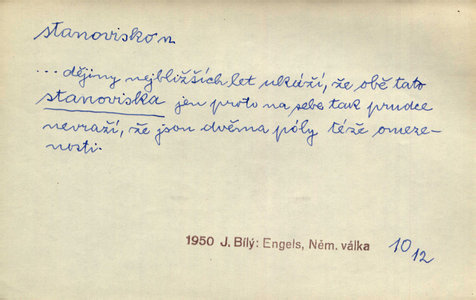 stanovisko n
... dějiny nejbližších let ukáží, že obě tato
stanoviska jen proto na sebe tak prudce
nevraží, že jsou dvěma póly téže omeze-
nosti.
1950 J. Bílý: Engels, Něm. válka 10/12